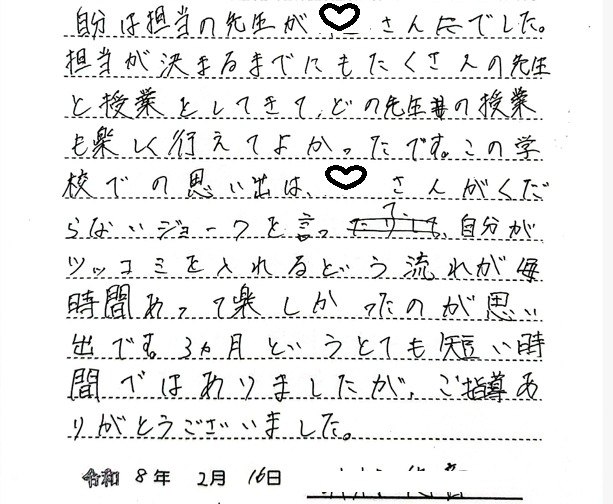 自分は担当の先生が さんでした。
担当が決まるまでにもたくさんの先生
と授業をしてきて、どの先生の授業
も楽しく行えてよかったです。この学
校での思い出は、 さんがくだ
らないジョークを言って、自分が
ツッコミを入れるという流れが毎
時間あって楽しかったのが思い
出です。3ヵ月というとても短い時
間ではありましたが、ご指導あ
りがとうございました。
令和 8年 2月 16日